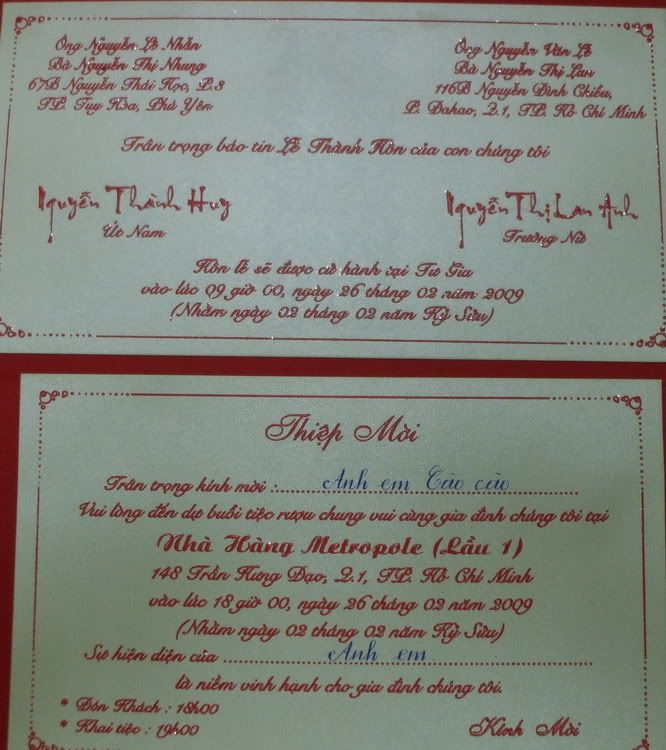 Ông Nguyễn Lê Nhẫn
Bà Nguyễn Thị Nhung
67B Nguyễn Thái Học, P.3
TP. Tuy Hòa, Phú Yên
Ông Nguyễn Văn Lễ
Bà Nguyễn Thị Lan
116B Nguyễn Đình Chiểu,
P. Dakao, Q.1, TP. Hồ Chí Minh
Trân trọng báo tin Lễ Thành Hôn của con chúng tôi
Nguyễn Thành Huy
Út Nam
Nguyễn Thị Lan Anh
Trưởng Nữ
Hôn lễ sẽ được cử hành tại Tư Gia
vào lúc 09 giờ 00, ngày 26 tháng 02 năm 2009
(Nhằm ngày 02 tháng 02 năm Kỷ Sửu)
Thiệp Mời
Trân trọng kính mời : Anh em Cào cào
Vui lòng đến dự buổi tiệc rượu chung vui cùng gia đình chúng tôi tại
Nhà Hàng Metropole (Lầu 1)
148 Trần Hưng Đạo, Q.1, TP. Hồ Chí Minh
vào lúc 18 giờ 00, ngày 26 tháng 02 năm 2009
(Nhằm ngày 02 tháng 02 năm Kỷ Sửu)
Sự hiện diện của Anh em
là niềm vinh hạnh cho gia đình chúng tôi.
* Đón Khách : 18h00
* Khai tiệc : 19h00
Kính Mời